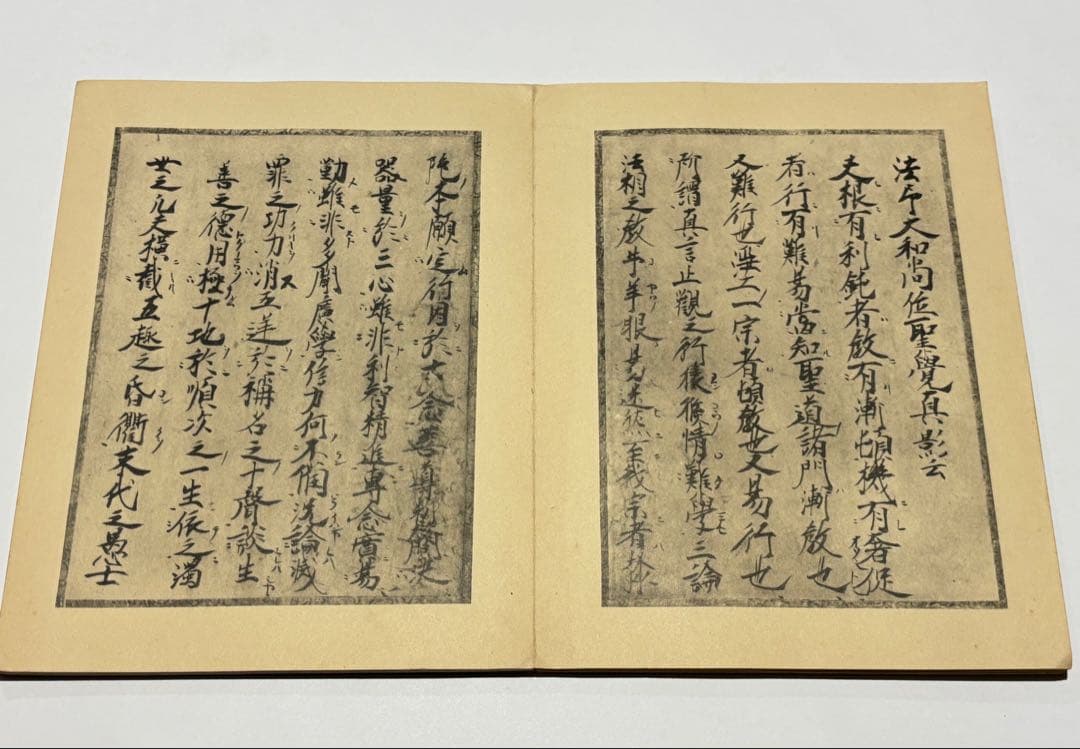 法印大和尚位聖覺真影云
夫根有利鈍者教有漸頓機有奢促
者行有難易當知聖道諸門漸教也
又難行也淨土一宗者頓教也又易行也
所謂真言止觀之行獼猴情難學三論
法相之教牛羊眼易迷然至我宗者弥
陁本願定行因於十念善導料簡决
器量於三心雖非利智精進專念實易
勤雖非多聞廣學信力何不備况論滅
罪之功力消五逆於稱名之十聲談生
善之德用極十地於順次之一生依之濁
世之凡夫橫截五趣之昏衢末代之愚士